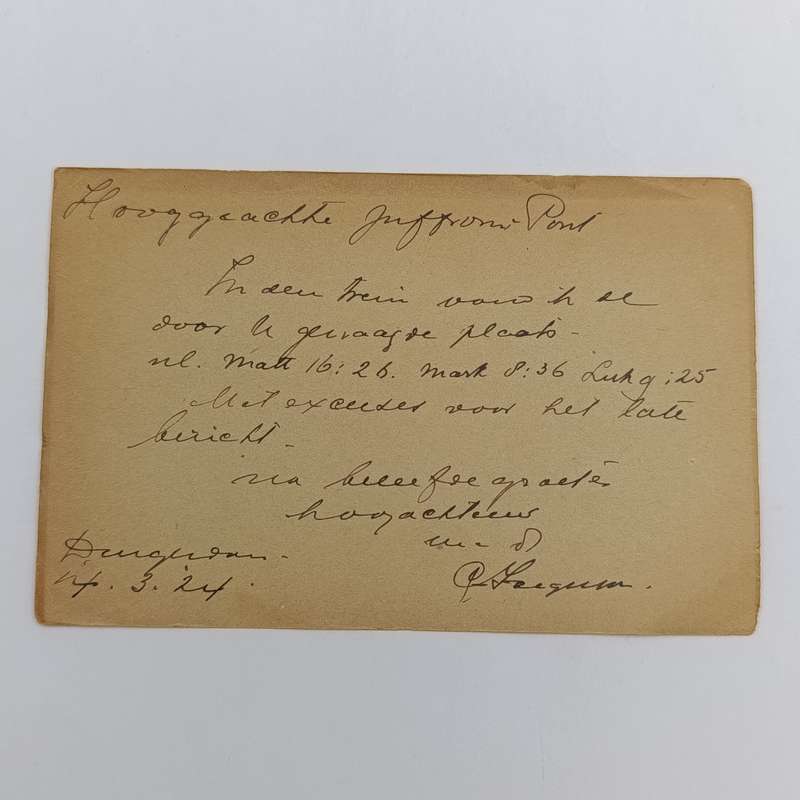 Hooggeachte Juffrouw Pont
In den trein vond ik de
door U gevraagde plaats -
nl. Matt 16:26. Mark 8:36 Luk 9:25
Met excuses voor het late
bericht -
na beleefde groeten
hoogachtend
14.3.24.